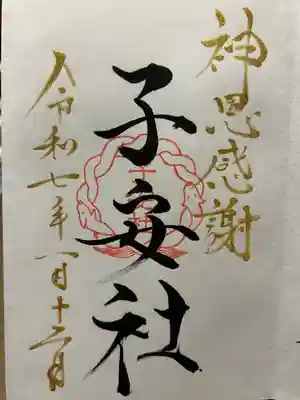 神恩感謝
子安社
令和七年一月十二月